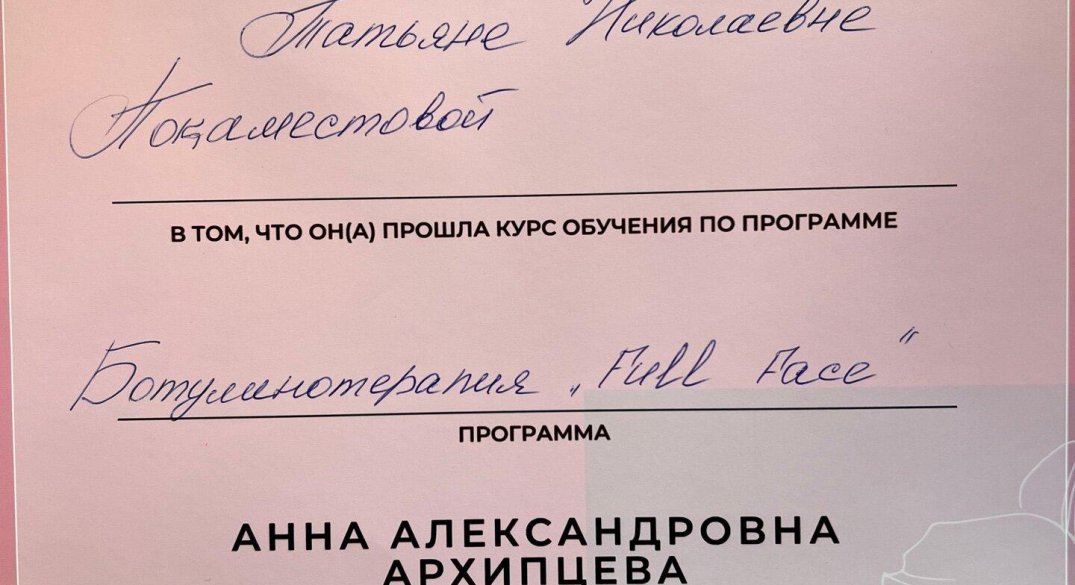 Татьяне Николаевне
Покаместовой
В ТОМ, ЧТО ОН(А) ПРОШЛА КУРС ОБУЧЕНИЯ ПО ПРОГРАММЕ
Ботулинотерапия „Full Face“
ПРОГРАММА
АННА АЛЕКСАНДРОВНА
АРХИПЦЕВА